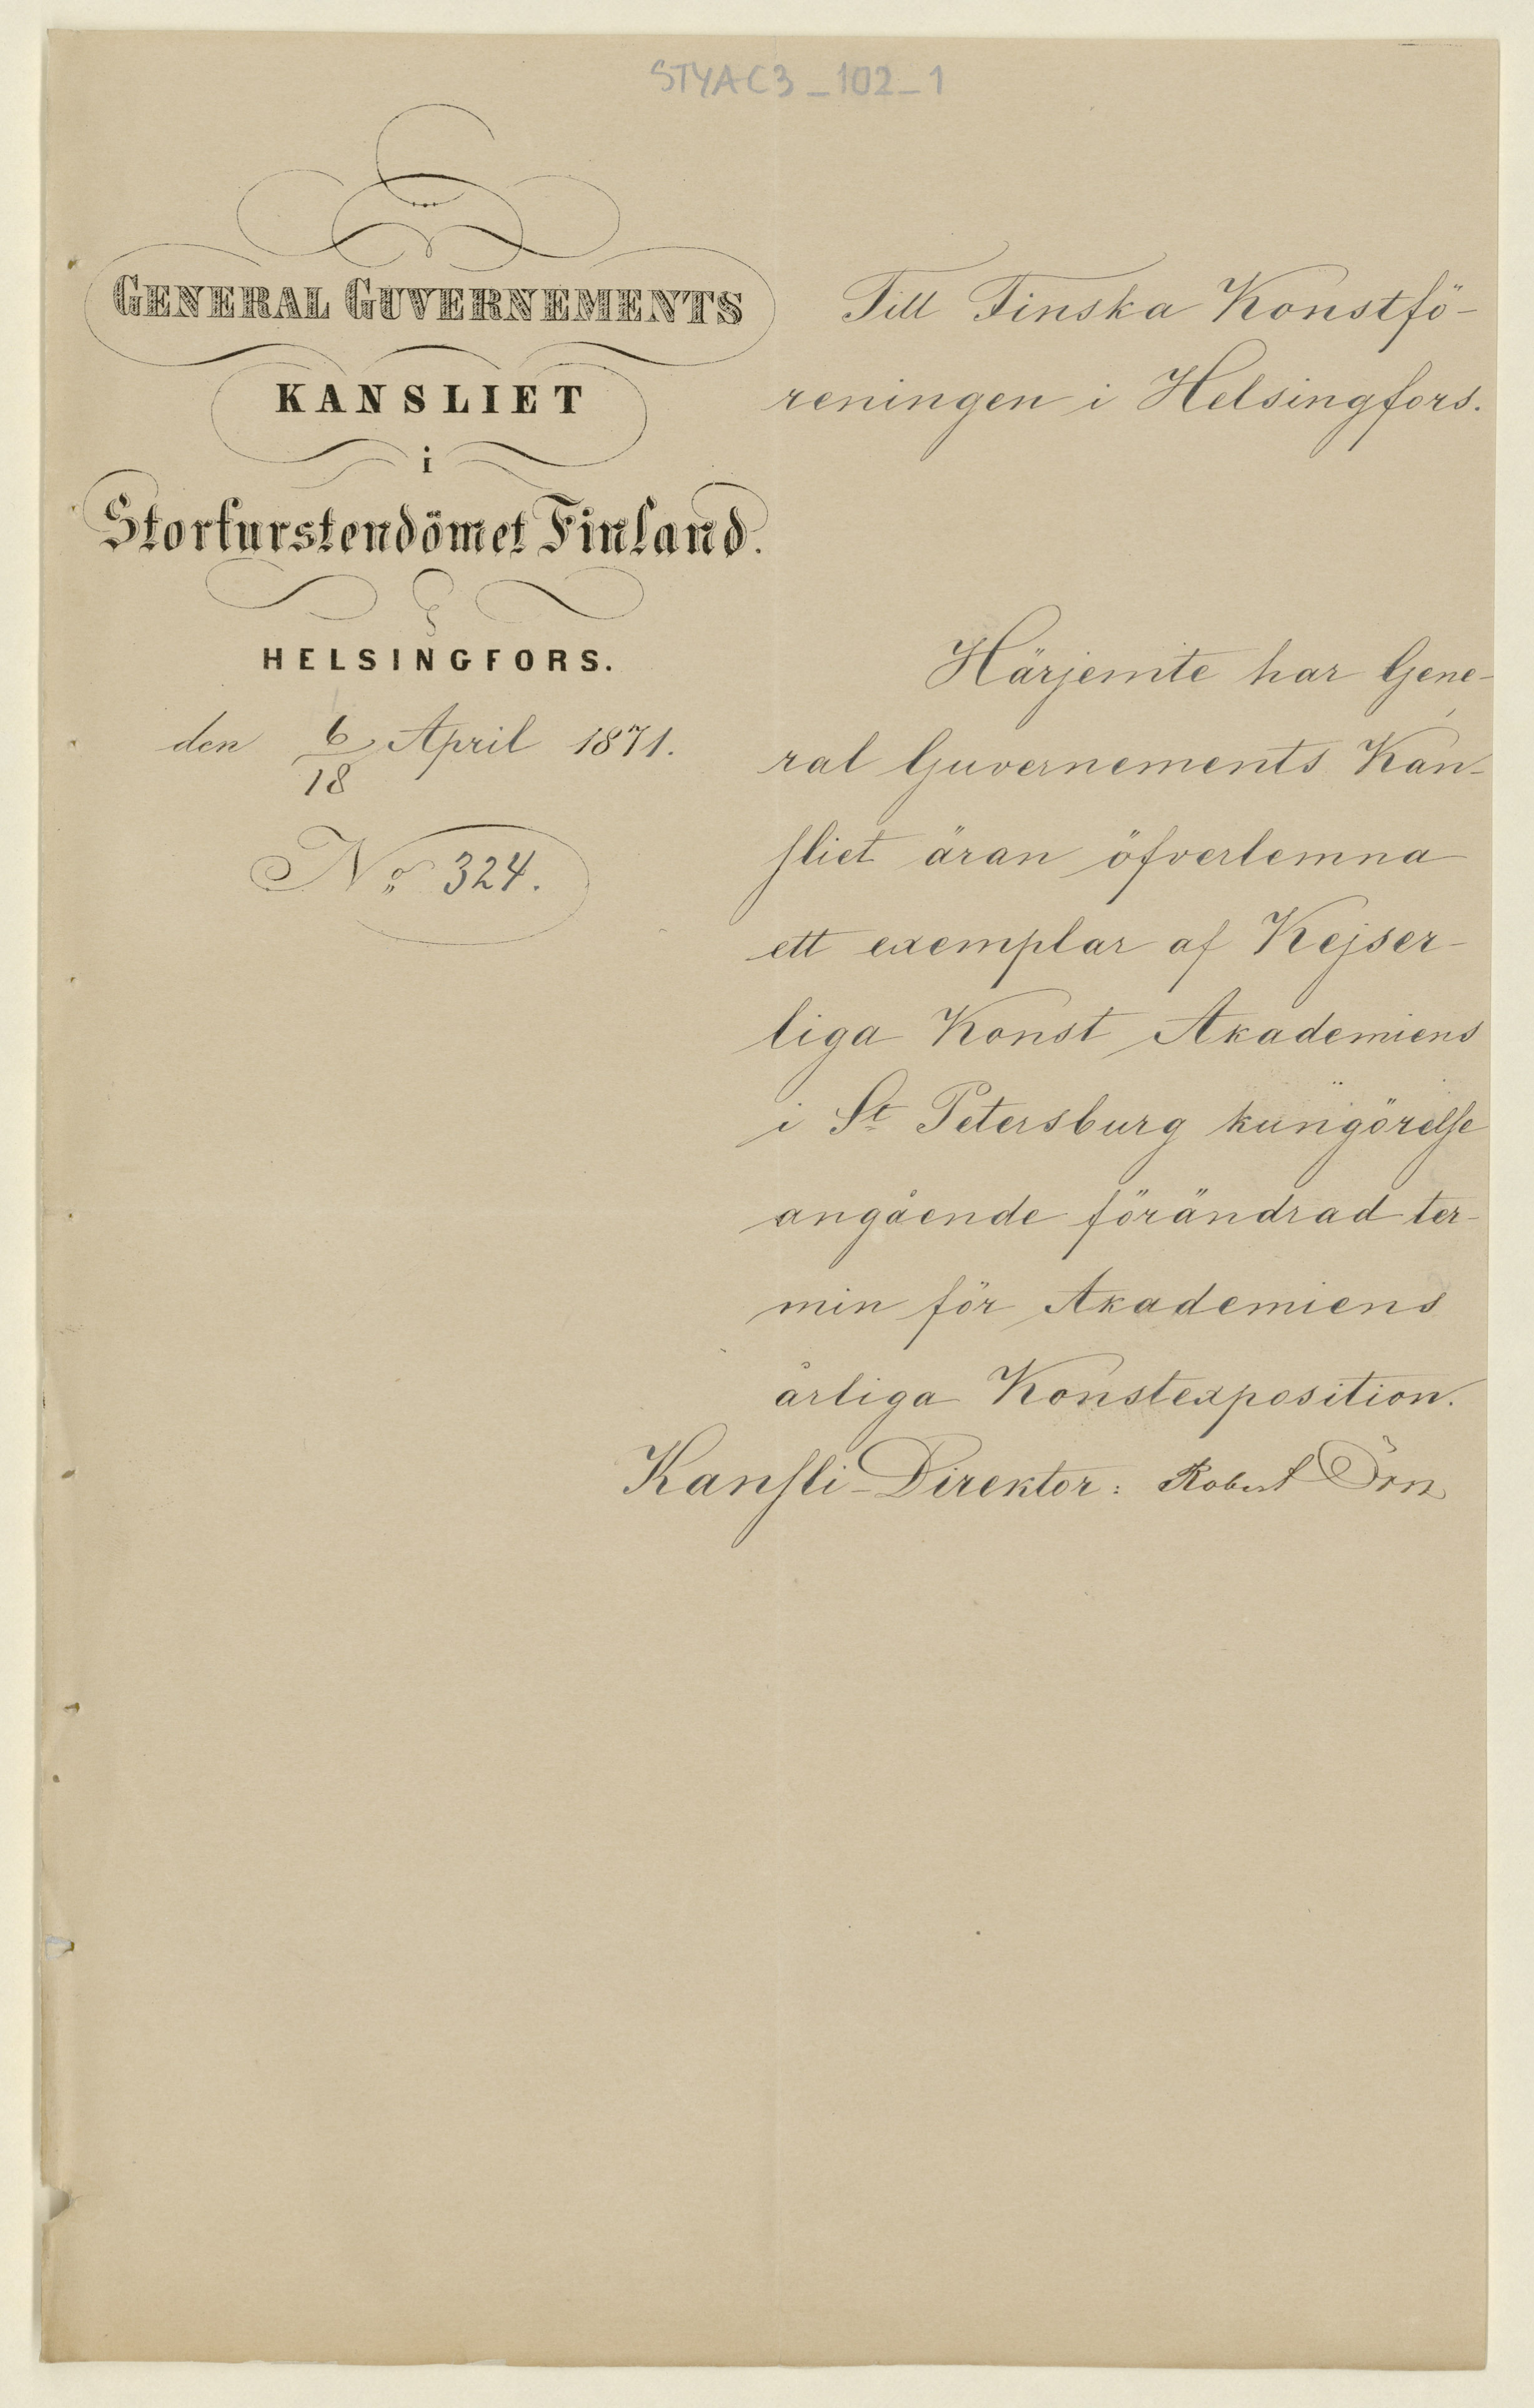 STYAC3_102_1
GENERAL GUVERNEMENTS
KANSLIET
i
Storfurstendömet Finland.
HELSINGFORS.
den 6/18 April 1871.
No 324.
Till Finska Konstfö-
reningen i Helsingfors.
Härjemte har Gene-
ral Guvernements Kan-
sliet äran öfverlemna
ett exemplar af Kejser-
liga Konst Akademiens
i St Petersburg kungörelse
angående förändrad ter-
min för Akademiens
årliga Konstexposition.
Kansli-Direktor: Robert Örn